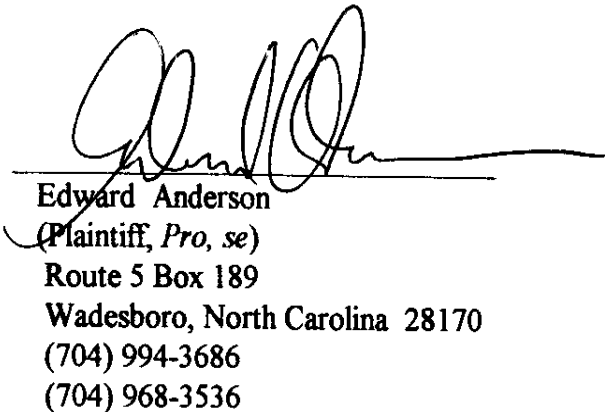 Edward Anderson
(Plaintiff, Pro, se)
Route 5 Box 189
Wadesboro, North Carolina 28170
(704) 994-3686
(704) 968-3536